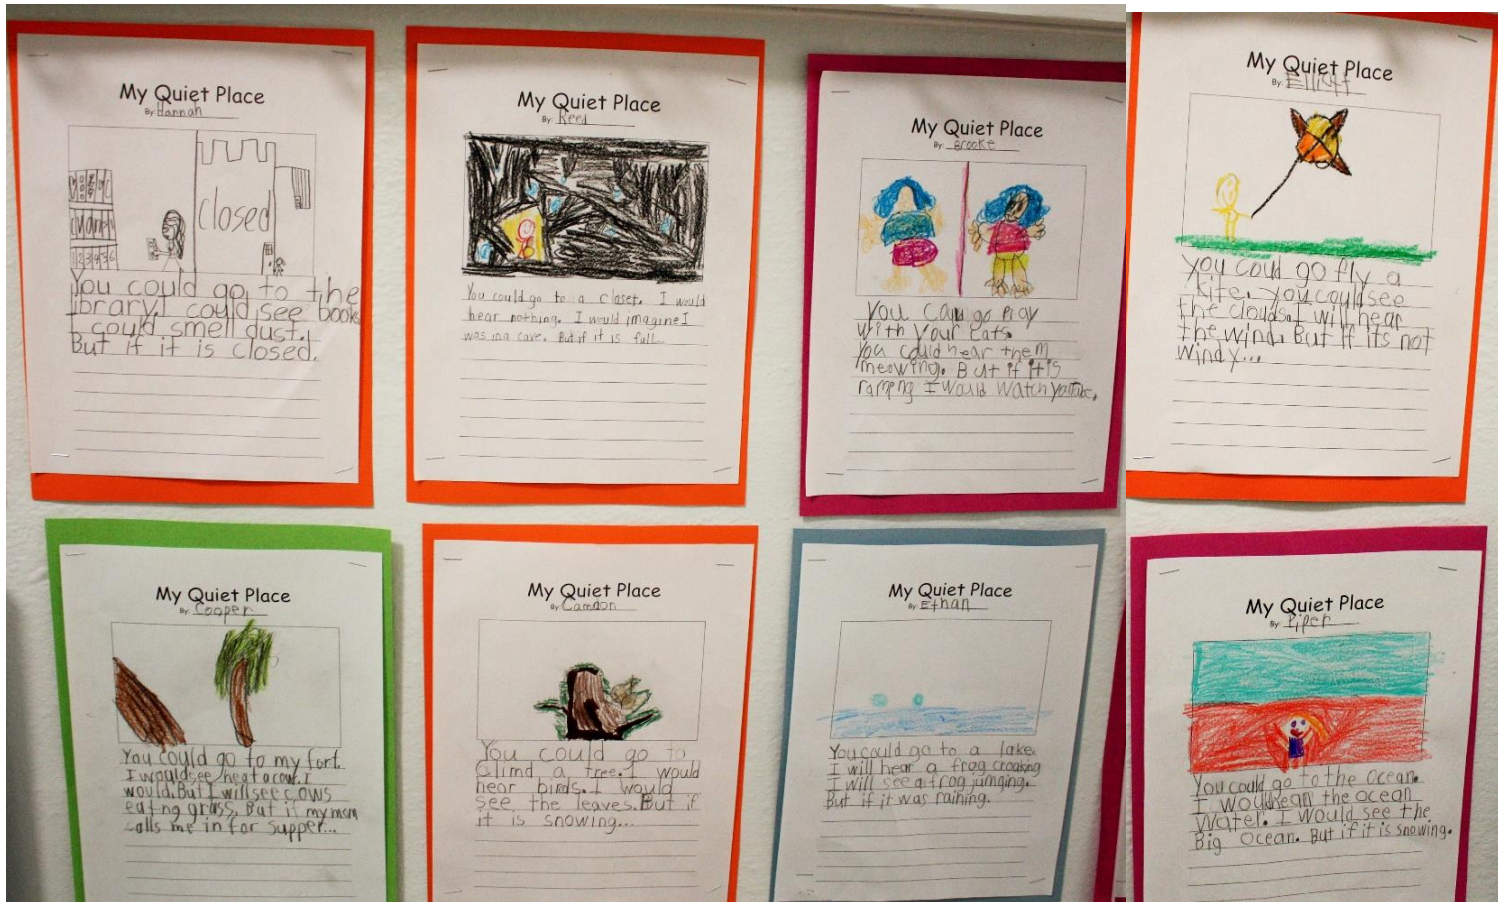 My Quiet Place
By: Hannah
closed
You could go to the
library. I could see books
I could smell dust.
But if it is closed.
My Quiet Place
By: Reed
You could go to a closet. I would
hear nothing. I would imagine I
was in a cave. But if it is full.
My Quiet Place
By: Brooke
You could go play
with your cats.
You could hear them
meowing. But if it is
raining I would watch youtube.
My Quiet Place
By: Elliott
you could go fly a
kite. you could see
the clouds. I will hear
the wind. But if its not
windy...
My Quiet Place
By: Cooper
You could go to my fort.
I would see hear a cow. I
would. But I will see cows
eating grass. But if my mom
calls me in for supper...
My Quiet Place
By: Camdon
You could go to
climd a tree. I would
hear birds. I would
see the leaves. But if
it is snowing...
My Quiet Place
By: Ethan
You could go to a lake.
I will hear a frog croaking
I will see a frog jumging.
But if it was raining.
My Quiet Place
By: Piper
You could go to the ocean.
I would hean the ocean
water. I would see the
Big Ocean. But if it is snowing.